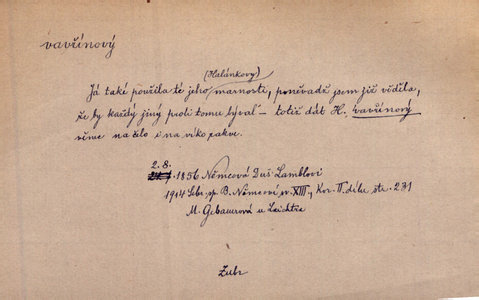 vavřínový
(Halánkovy)
Já také použila té jeho marnosti, poněvadž jsem již věděla,
že by každý jiný proti tomu býval – totiž dát H. vavřínový
věnec na čelo i na víko rakve.
2. 8.
1856 Němcová Duš. Lamblovi
1914 Sebr. sp. B. Němcové sv. XIII., Kor. II. dílu str. 231
M. Gebauerová u Laichtra
Zubr